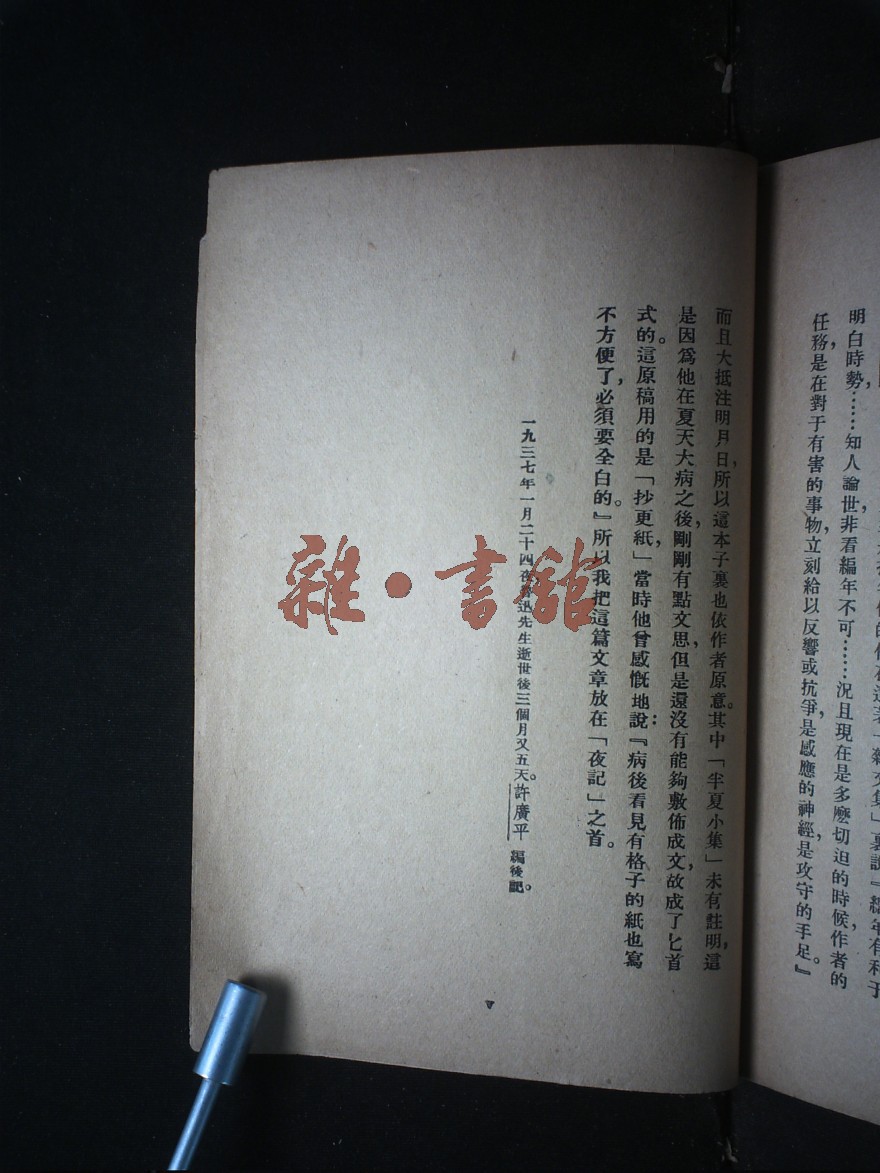 明白時勢……知人論世，非看編年不可……況且現在是多麽切迫的時候，作者的
任務，是在對于有害的事物，立刻給以反響或抗爭，是感應的神經，是攻守的手足。』
而且大抵注明月日，所以這本子裏也依作者原意。其中「半夏小集」未有註明，這
是因爲他在夏天大病之後，剛剛有點文思，但是還沒有能夠敷佈成文，故成了匕首
式的。這原稿用的是「抄更紙」，當時他曾感慨地說：『病後看見有格子的紙也寫
不方便了，必須要全白的。』所以我把這篇文章放在「夜記」之首。
一九三七年一月二十四夜魯迅先生逝世後三個月又五天。許廣平編後記。
雜·書館